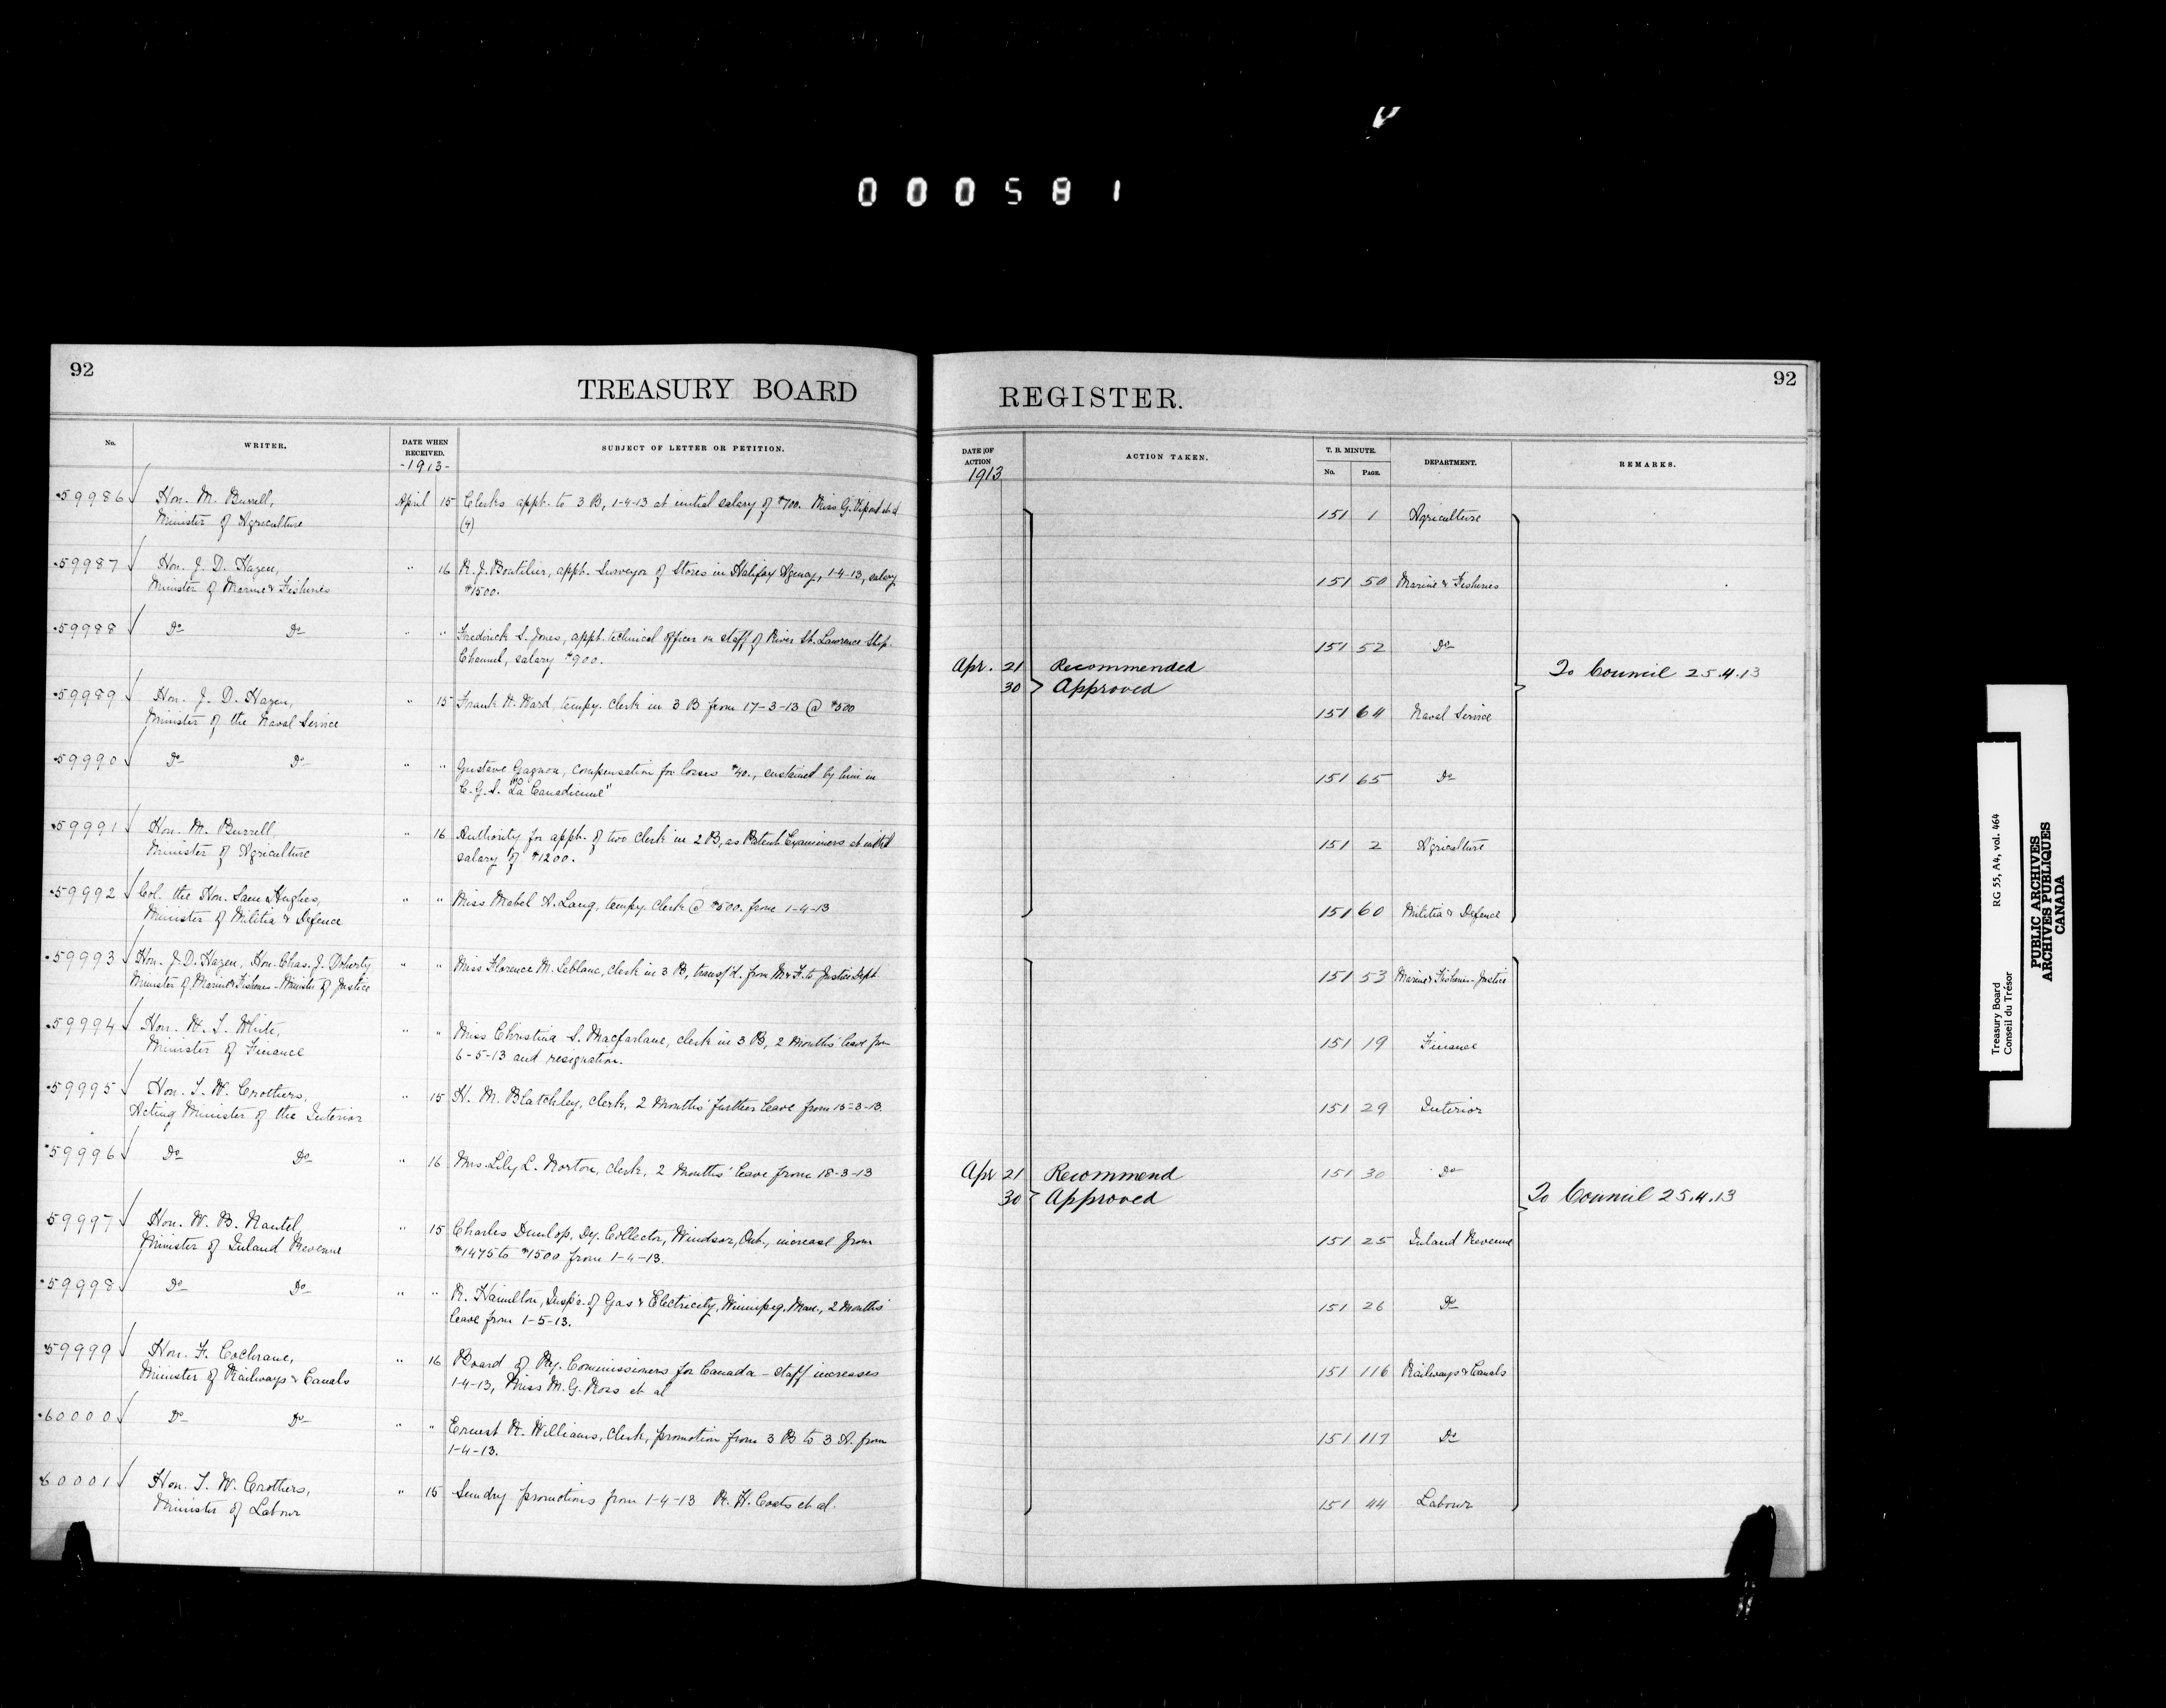 000581
92
TREASURY BOARD
REGISTER.
92
No.
WRITER.
DATE WHEN RECEIVED.
-1913-
SUBJECT OF LETTER OR PETITION.
DATE OF ACTION
1913
ACTION TAKEN.
T. B. MINUTE.
No.
PAGE.
DEPARTMENT.
REMARKS.
59986 Hon. M. Burrell, April 15 Clerks appt. to 3 B, 1-4-13 at initial salary of $700. Miss G. et al 151 1 Agriculture
Minister of Agriculture (4)
59987 Hon. J. D. Hazen, " 16 R. J. Boutilier, appt. Surveyor of Stores in Halifax Agency, 1-4-13, salary 151 50 Marine & Fisheries
Minister of Marine & Fisheries $1500.
59988 Do Do " " Frederick S. Jones, appt. technical officer on staff of River St. Lawrence Ship 151 52 Do
Channel, salary $900.
Apr. 21 Recommended
30 Approved
To Council 25.4.13
59989 Hon. J. D. Hazen, " 15 Frank R. Ward, tempy. clerk in 3 B from 17-3-13 @ $500 151 64 Naval Service
Minister of the Naval Service
59990 Do Do " " Gustave Gagnon, compensation for losses $40., sustained by him in 151 65 Do
C.G.S. "La Canadienne"
59991 Hon. M. Burrell, " 16 Authority for appt. of two clerks in 2 B, as Patent Examiners at initial 151 2 Agriculture
Minister of Agriculture salary of $1200.
59992 Col. the Hon. Sam Hughes, " " Miss Mabel A. Lang, tempy. clerk @ $500. from 1-4-13 151 60 Militia & Defence
Minister of Militia & Defence
59993 Hon. J. D. Hazen, Hon. Chas. J. Doherty " " Miss Florence M. Leblanc, clerk in 3 B, transf'd. from M & F. to Justice Dept. 151 53 Marine & Fisheries - Justice
Minister of Marine & Fisheries - Minister of Justice
59994 Hon. W. T. White, " " Miss Christina S. Macfarlane, clerk in 3 B, 2 months' leave from 151 19 Finance
Minister of Finance 6-5-13 and resignation.
59995 Hon. T. W. Crothers, " 15 H. M. Blatchley, clerk, 2 months' further leave from 15-3-13. 151 29 Interior
Acting Minister of the Interior
59996 Do Do " 16 Mrs. Lily L. Norton, clerk, 2 months' leave from 18-3-13 151 30 Do
Apr 21 Recommend
30 Approved
To Council 25.4.13
59997 Hon. W. B. Nantel, " 15 Charles Dunlop, Dy. Collector, Windsor, Ont., increase from 151 25 Inland Revenue
Minister of Inland Revenue $1475 to $1500 from 1-4-13.
59998 Do Do " " R. Hamilton, Insp'r. of Gas & Electricity, Winnipeg, Man., 2 months' 151 26 Do
leave from 1-5-13.
59999 Hon. F. Cochrane, " 16 Board of Ry. Commissioners for Canada - Staff increases 151 116 Railways & Canals
Minister of Railways & Canals 1-4-13, Miss M. G. Ross et al
60000 Do Do " " Ernest R. Williams, clerk, promotion from 3 B to 3 A. from 151 117 Do
1-4-13.
60001 Hon. T. W. Crothers, " 15 Sundry promotions from 1-4-13 R. H. Coats et al. 151 44 Labour
Minister of Labour
Treasury Board RG 55, A4, vol. 464
Conseil du Trésor
PUBLIC ARCHIVES
ARCHIVES PUBLIQUES
CANADA